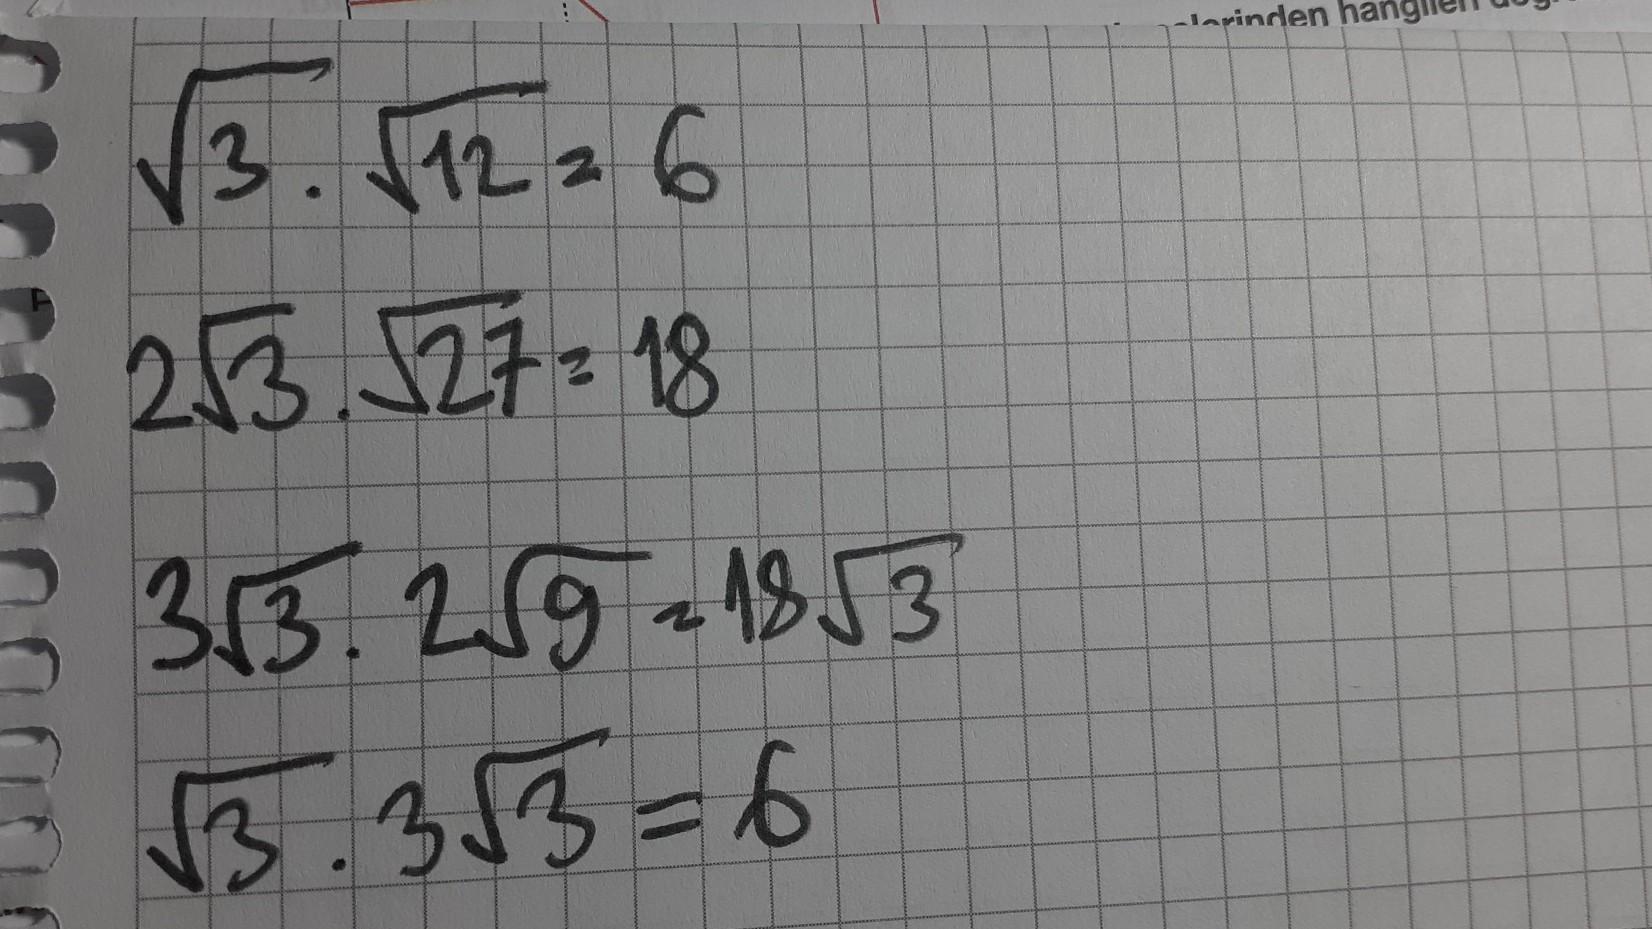 lerinden hangileri
√3 . √12 = 6
2√3 . √27 = 18
3√3 . 2√9 = 18√3
√3 . 3√3 = 6